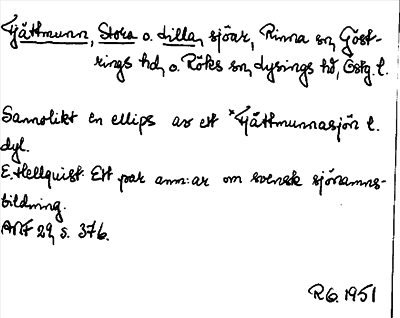 Tjåttmunn, Stora o. Lilla, sjöar, Rinna sn, Göst-
rings hd, o. Röks sn, Lysings hd, Östg. l.
Sannolikt en ellips av ett *Tjåttmunnasjön l.
dyl.
E. Hellquist: Ett par anm:ar om svensk sjönamns-
bildning.
ANF 29, s. 376.
R G. 1951